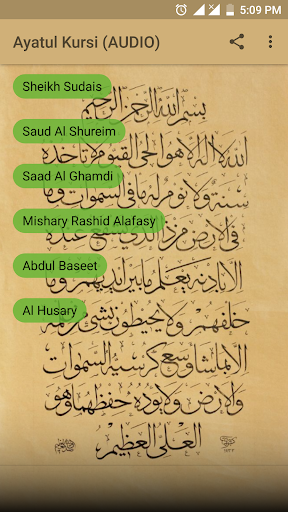 5:09 PM
Ayatul Kursi (AUDIO)
Sheikh Sudais
بسم الله الرحمن الرحيم
Saud Al Shureim
الله لا اله الا هو الحي القيوم لا تأخذه
Saad Al Ghamdi
سنة ولا نوم له ما في السموات وما
Mishary Rashid Alafasy
في الارض من ذا الذي يشفع عنده
Abdul Baseet
الا باذنه يعلم ما بين ايديهم وما
Al Husary
خلفهم ولا يحيطون بشيء من علمه
الا بما شاء وسع كرسيه السموات
والارض ولا يؤده حفظهما وهو
العلي العظيم